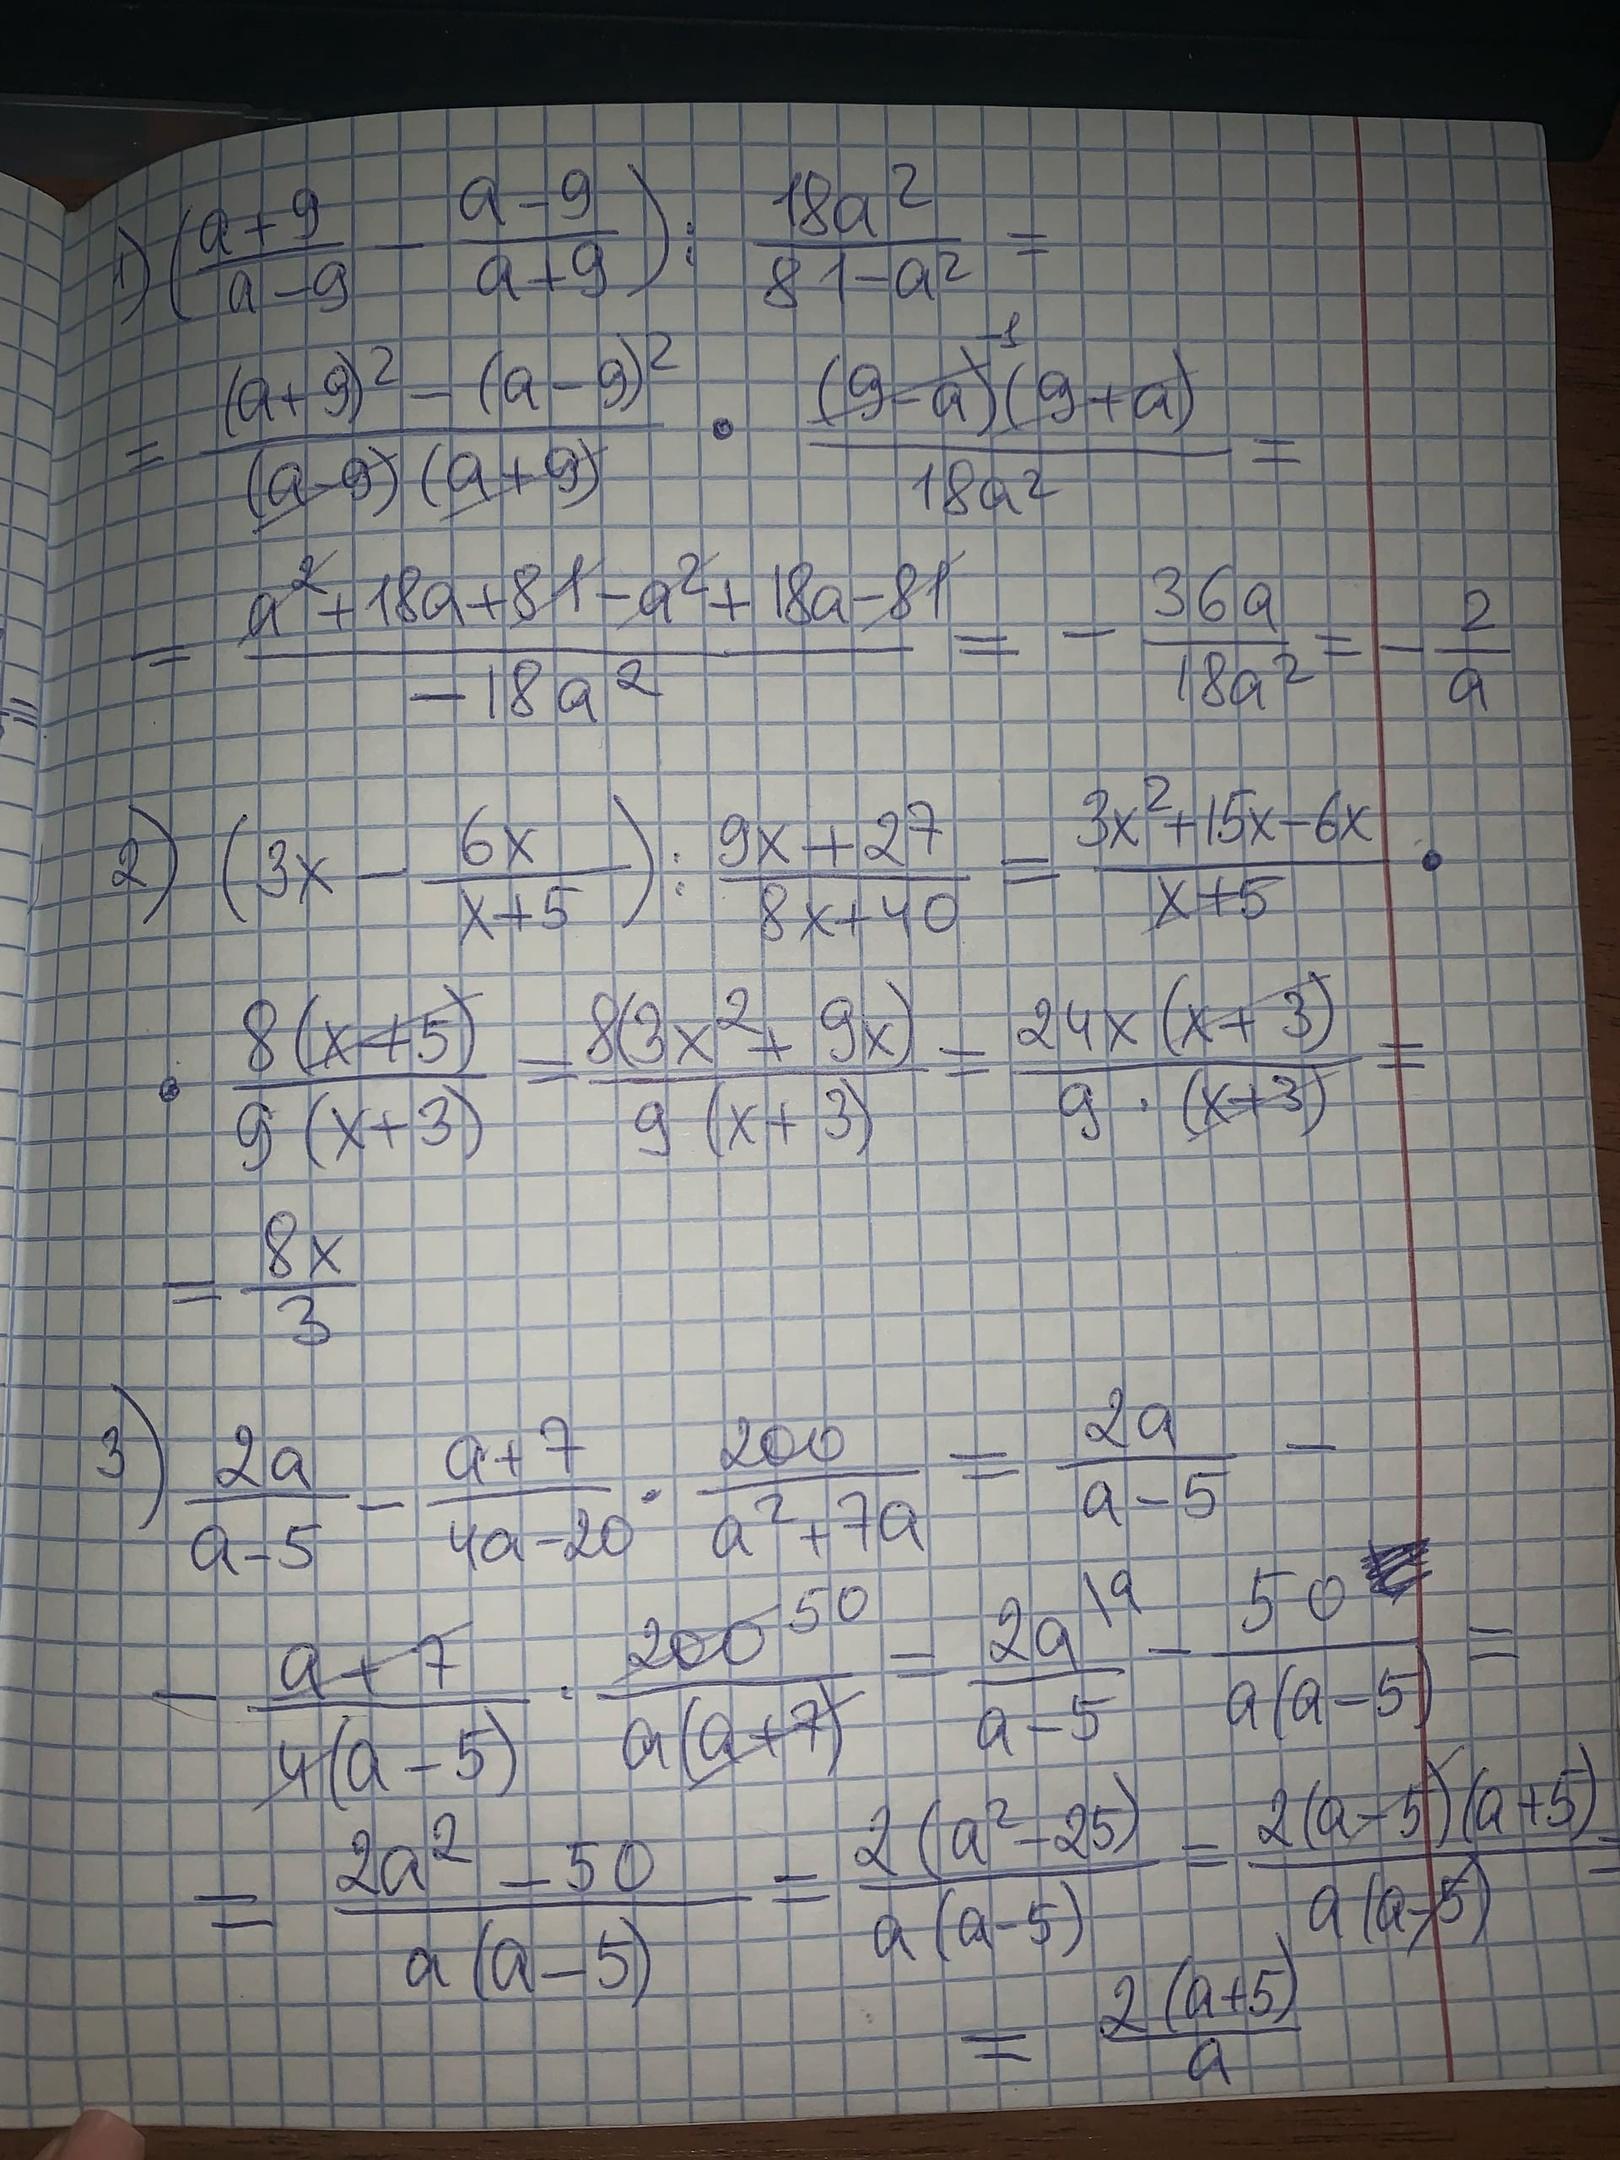 1) ((a+9)/(a-9) - (a-9)/(a+9)) : 18a²/(81-a²) =
= ((a+9)² - (a-9)²)/((a-9)(a+9)) · ((9-a)⁻¹(9+a))/18a² =
= (a²+18a+81-a²+18a-81)/(-18a²) = - 36a/18a² = - 2/a
2) (3x - 6x/(x+5)) : (9x+27)/(8x+40) = (3x²+15x-6x)/(x+5) ·
· 8(x+5)/(9(x+3)) = 8(3x²+9x)/(9(x+3)) = 24x(x+3)/(9·(x+3)) =
= 8x/3
3) 2a/(a-5) - (a+7)/(4a-20) · 200/(a²+7a) = 2a/(a-5) -
- (a+7)/(4(a-5)) · 200 50/(a(a+7)) = 2a\a/(a-5) - 50/(a(a-5)) =
= (2a²-50)/(a(a-5)) = 2(a²-25)/(a(a-5)) = 2(a-5)(a+5)/(a(a-5)) =
= 2(a+5)/a